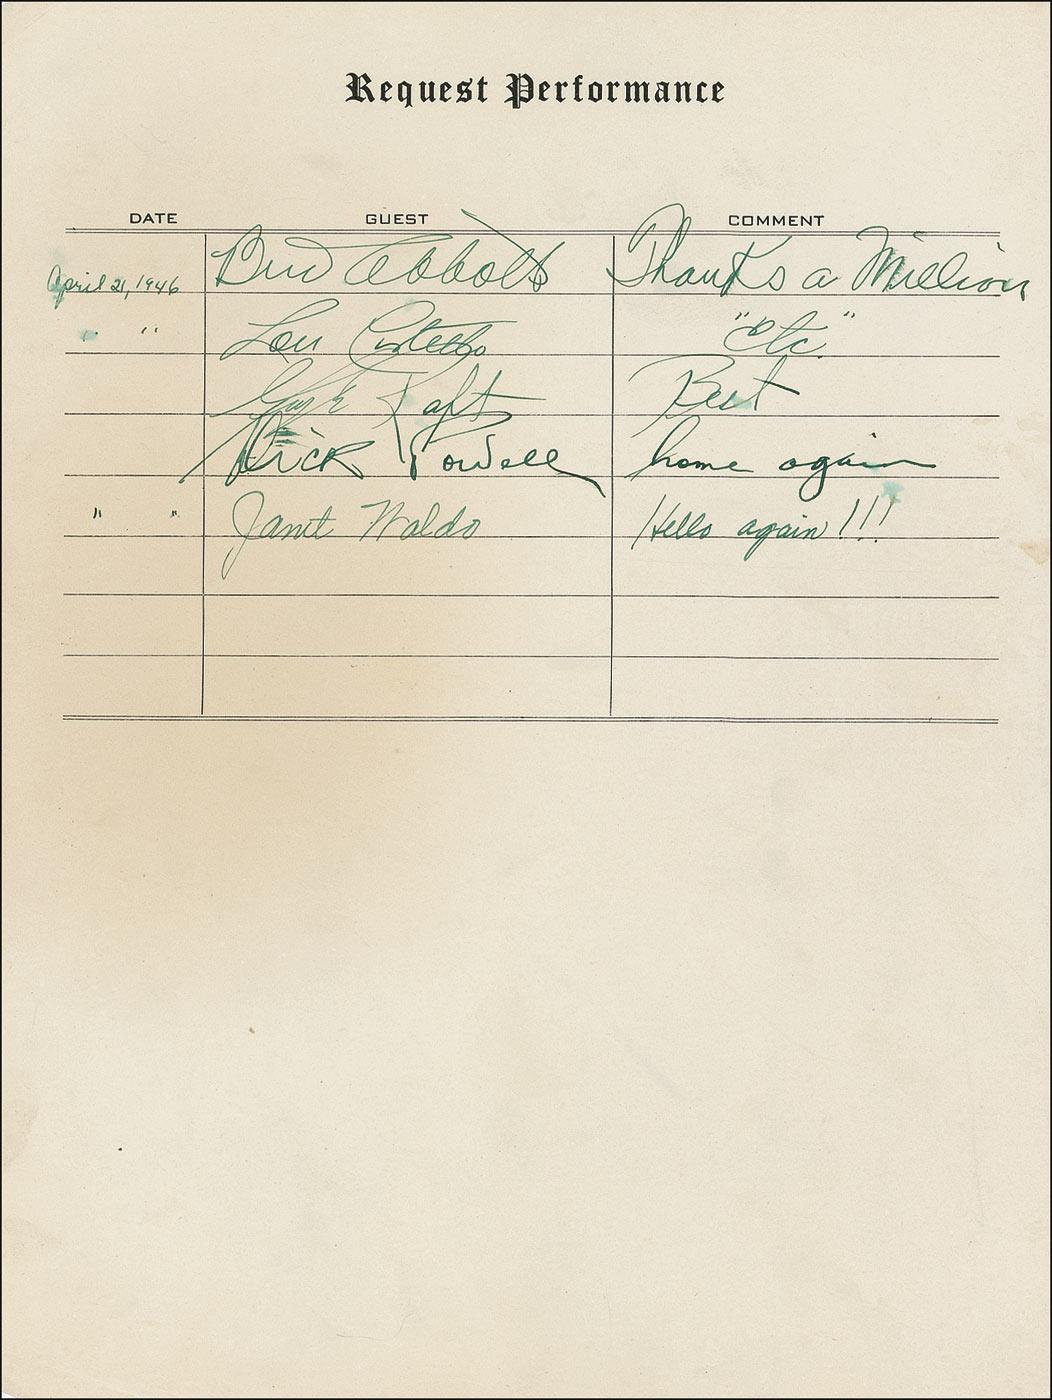 Request Performance
DATE GUEST COMMENT
April 21, 1946 Bud Abbott Thanks a Million
" " Lou Costello "Etc."
George Raft Best
Dick Powell home again
" " Janet Waldo Hello again!!!